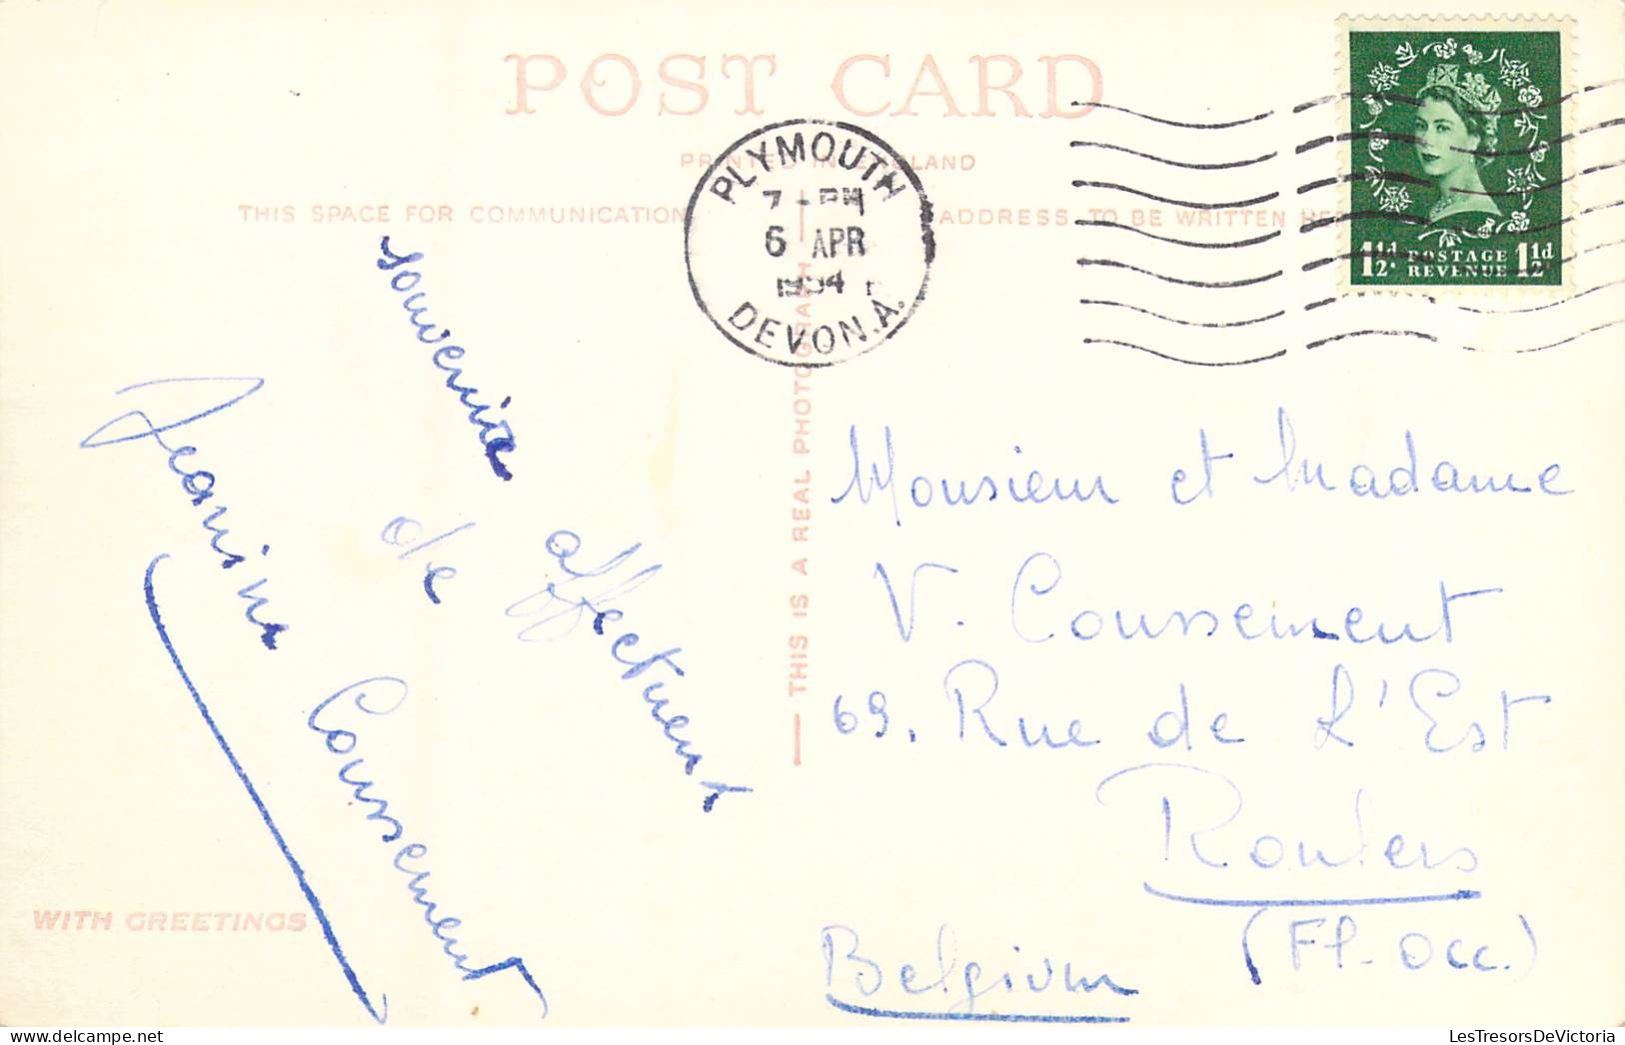 POST CARD
PRINTED IN ENGLAND
THIS SPACE FOR COMMUNICATION
ADDRESS TO BE WRITTEN HERE
PLYMOUTH
7-PM
6 APR
1954
DEVON.A.
1½d. POSTAGE REVENUE 1½d
THIS IS A REAL PHOTOGRAPH
souvenir
affectueux
de
Jeanine Coussement
Monsieur et Madame
V. Coussement
69. Rue de L'Est
Roulers
(Fl. Occ.)
Belgium
WITH GREETINGS
LesTresorsDeVictoria